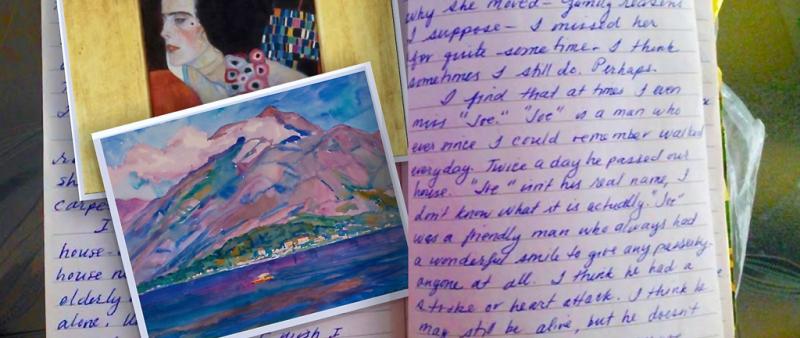 sh
carpe
I
house-
house n
elderly
alone.
I
why she moved - family reasons
I suppose - I missed her
for quite sometime. I think
sometimes I still do. Perhaps.
I find that at times I even
miss "Joe." "Joe" is a man who
ever since I could remember walked
everyday. Twice a day he passed our
house. "Joe" isn't his real name, I
don't know what it is actually. "Joe"
was a friendly man who always had
a wonderful smile to give any passerby-
anyone at all. I think he had a
stroke or heart attack. I think he
may still be alive, but he doesn't